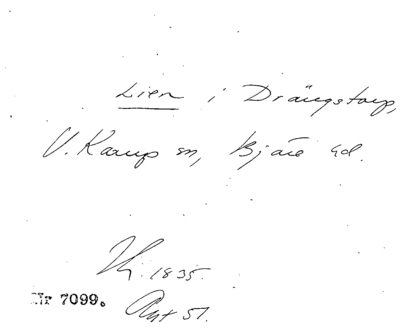 Lien i Drängstorp,
V. Karup sn, Bjäre hd.
1835.
Nr 7099. Akt 51.